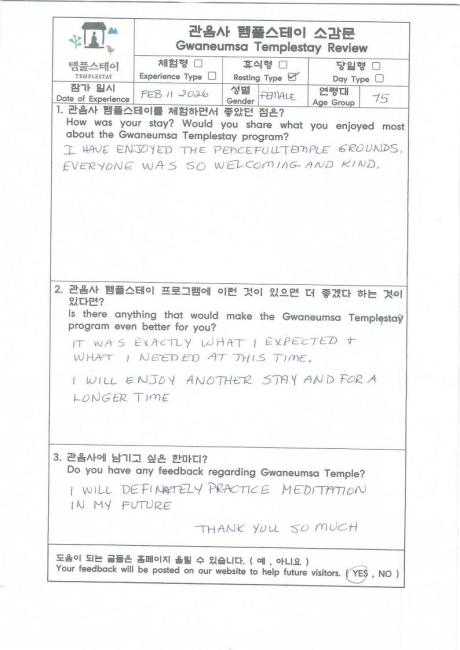 관음사 템플스테이 소감문
Gwaneumsa Templestay Review
템플스테이
TEMPLESTAY
체험형 □ 휴식형 □ 당일형 □
Experience Type □ Resting Type ☑ Day Type □
참가 일시
Date of Experience
FEB 11 2026
성별
Gender
FEMALE
연령대
Age Group
75
1. 관음사 템플스테이를 체험하면서 좋았던 점은?
How was your stay? Would you share what you enjoyed most
about the Gwaneumsa Templestay program?
I HAVE ENJOYED THE PEACEFULL TEMPLE GROUNDS.
EVERYONE WAS SO WELCOMING AND KIND.
2. 관음사 템플스테이 프로그램에 이런 것이 있으면 더 좋겠다 하는 것이
있다면?
Is there anything that would make the Gwaneumsa Templestay
program even better for you?
IT WAS EXACTLY WHAT I EXPECTED +
WHAT I NEEDED AT THIS TIME.
I WILL ENJOY ANOTHER STAY AND FOR A
LONGER TIME
3. 관음사에 남기고 싶은 한마디?
Do you have any feedback regarding Gwaneumsa Temple?
I WILL DEFINATELY PRACTICE MEDITATION
IN MY FUTURE
THANK YOU SO MUCH
도움이 되는 글들은 홈페이지 올릴 수 있습니다. ( 예 , 아니요 )
Your feedback will be posted on our website to help future visitors. ( YES , NO )